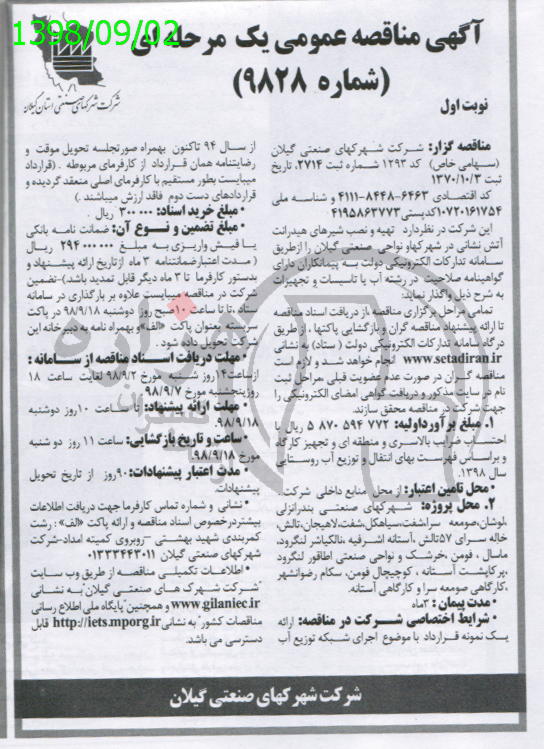 1398/09/02
آگهی مناقصه عمومی یک مرحله ای
(شماره ۹۸۲۸)
نوبت اول
شرکت شهرکهای صنعتی استان گیلان
مناقصه گزار: شرکت شهرکهای صنعتی گیلان
(سهامی خاص) کد ۱۲۹۳ شماره ثبت ۲۷۱۴، تاریخ
ثبت ۱۳۷۰/۱۰/۳
کد اقتصادی ۶۴۶۳-۸۴۴۸-۴۱۱۱ و شناسه ملی
۱۰۷۲۰۱۶۱۷۵۴ کدپستی ۴۱۹۵۸۶۳۷۷۳
این شرکت در نظردارد تهیه و نصب شیرهای هیدرانت
آتش نشانی در شهرکهاو نواحی صنعتی گیلان را ازطریق
سامانه تدارکات الکترونیکی دولت به پیمانکاران دارای
گواهینامه صلاحیت در رشته آب یا تاسیسات و تجهیزات
به شرح ذیل واگذار نماید:
تمامی مراحل برگزاری مناقصه از دریافت اسناد مناقصه
تا ارائه پیشنهاد مناقصه گران و بازگشایی پاکتها، از طریق
درگاه سامانه تدارکات الکترونیکی دولت (ستاد) به نشانی
www.setadiran.ir انجام خواهد شد و لازم است
مناقصه گران در صورت عدم عضویت قبلی ،مراحل ثبت
نام در سایت مذکور و دریافت گواهی امضای الکترونیکی را
جهت شرکت در مناقصه محقق سازند.
۱. مبلغ برآورداولیه: ۷۷۲ ۵۹۴ ۸۷۰ ۵ ریال با
احتساب ضرایب بالاسری و منطقه ای و تجهیز کارگاه
و براساس فهرست بهای انتقال و توزیع آب روستایی
سال ۱۳۹۸.
•محل تامین اعتبار: از محل منابع داخلی شرکت.
۲. محل پروژه: شهرکهای صنعتی بندرانزلی
،لوشان،صومعه سرا،شفت،سیاهکل،شفت،لاهیجان،تالش،
خاله سرای ۵۷تالش ،آستانه اشرفیه ،نالکیاشر لنگرود،
ماسال ، فومن ،خرشک و نواحی صنعتی اطاقور لنگرود
،پرکاپشت آستانه ، کوچیچال فومن، سکام رضوانشهر
،کارگاهی صومعه سرا و کارگاهی آستانه.
•مدت پیمان: ۳ماه
•شرایط اختصاصی شرکت در مناقصه: ارائه
یک نمونه قرارداد با موضوع اجرای شبکه توزیع آب
از سال ۹۴ تاکنون بهمراه صورتجلسه تحویل موقت و
رضایتنامه همان قرارداد از کارفرمای مربوطه . (قرارداد
میبایست بطور مستقیم با کارفرمای اصلی منعقد گردیده و
قراردادهای دست دوم فاقد ارزش میباشند.)
•مبلغ خرید اسناد: ۳۰۰ ۰۰۰ ریال .
•مبلغ تضمین و نوع آن: ضمانت نامه بانکی
یا فیش واریزی به مبلغ ۲۹۴ ۰۰۰ ۰۰۰ ریال
( مدت اعتبارضمانتنامه ۳ ماه ازتاریخ ارائه پیشنهاد و
بدستور کارفرما تا ۳ ماه دیگر قابل تمدید باشد)-تضمین
شرکت در مناقصه میبایست علاوه بر بارگذاری در سامانه
ستاد ،تا تا ساعت ۱۰صبح روز دوشنبه ۹۸/۹/۱۸ در پاکت
سربسته بعنوان پاکت «الف»و بهمراه نامه به دبیرخانه این
شرکت تحویل داده شود .
•مهلت دریافت اسناد مناقصه از سامانه :
ازساعت۱۴ روز شنبه مورخ ۹۸/۹/۲ لغایت ساعت ۱۸
روزپنجشنبه مورخ ۹۸/۹/۷.
•مهلت ارائه پیشنهاد: تا ساعت ۱۰روز دوشنبه
۹۸/۹/۱۸.
•ساعت و تاریخ بازگشایی: ساعت ۱۱ روز دو شنبه
مورخ ۹۸/۹/۱۸.
•مدت اعتبار پیشنهادات: ۹۰روز از تاریخ تحویل
پیشنهادات.
•نشانی و شماره تماس کارفرما جهت دریافت اطلاعات
بیشتردرخصوص اسناد مناقصه و ارائه پاکت «الف» : رشت
کمربندی شهید بهشتی -روبروی کمیته امداد-شرکت
شهرکهای صنعتی گیلان ۰۱۳۳۳۴۴۳۰۱۱
•اطلاعات تکمیلی مناقصه از طریق وب سایت
"شرکت شهرک های صنعتی گیلان"به نشانی
www.gilaniec.ir و همچنین"پایگاه ملی اطلاع رسانی
مناقصات کشور" به نشانیhttp://iets.mporg.ir قابل
دسترسی می باشد.
شرکت شهرکهای صنعتی گیلان